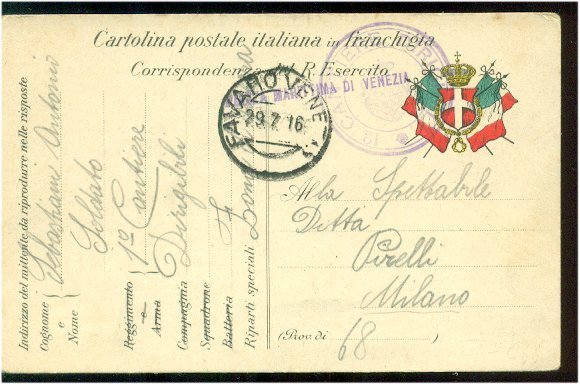 Cartolina postale italiana in franchigia
Corrispondenza R. Esercito
MARITTIMA DI VENEZIA
FAVARO VENE
29.7.16
Indirizzo del mittente da riprodurre nelle risposte
Cognome e Nome
Sebastiani Antonio
Soldato
Reggimento e Arma
1º Cantiere
Compagnia
Dirigibili
Squadrone
Batteria
Riparti speciali
Alla Spettabile
Ditta
Pirelli
Milano
(Prov. di )
68